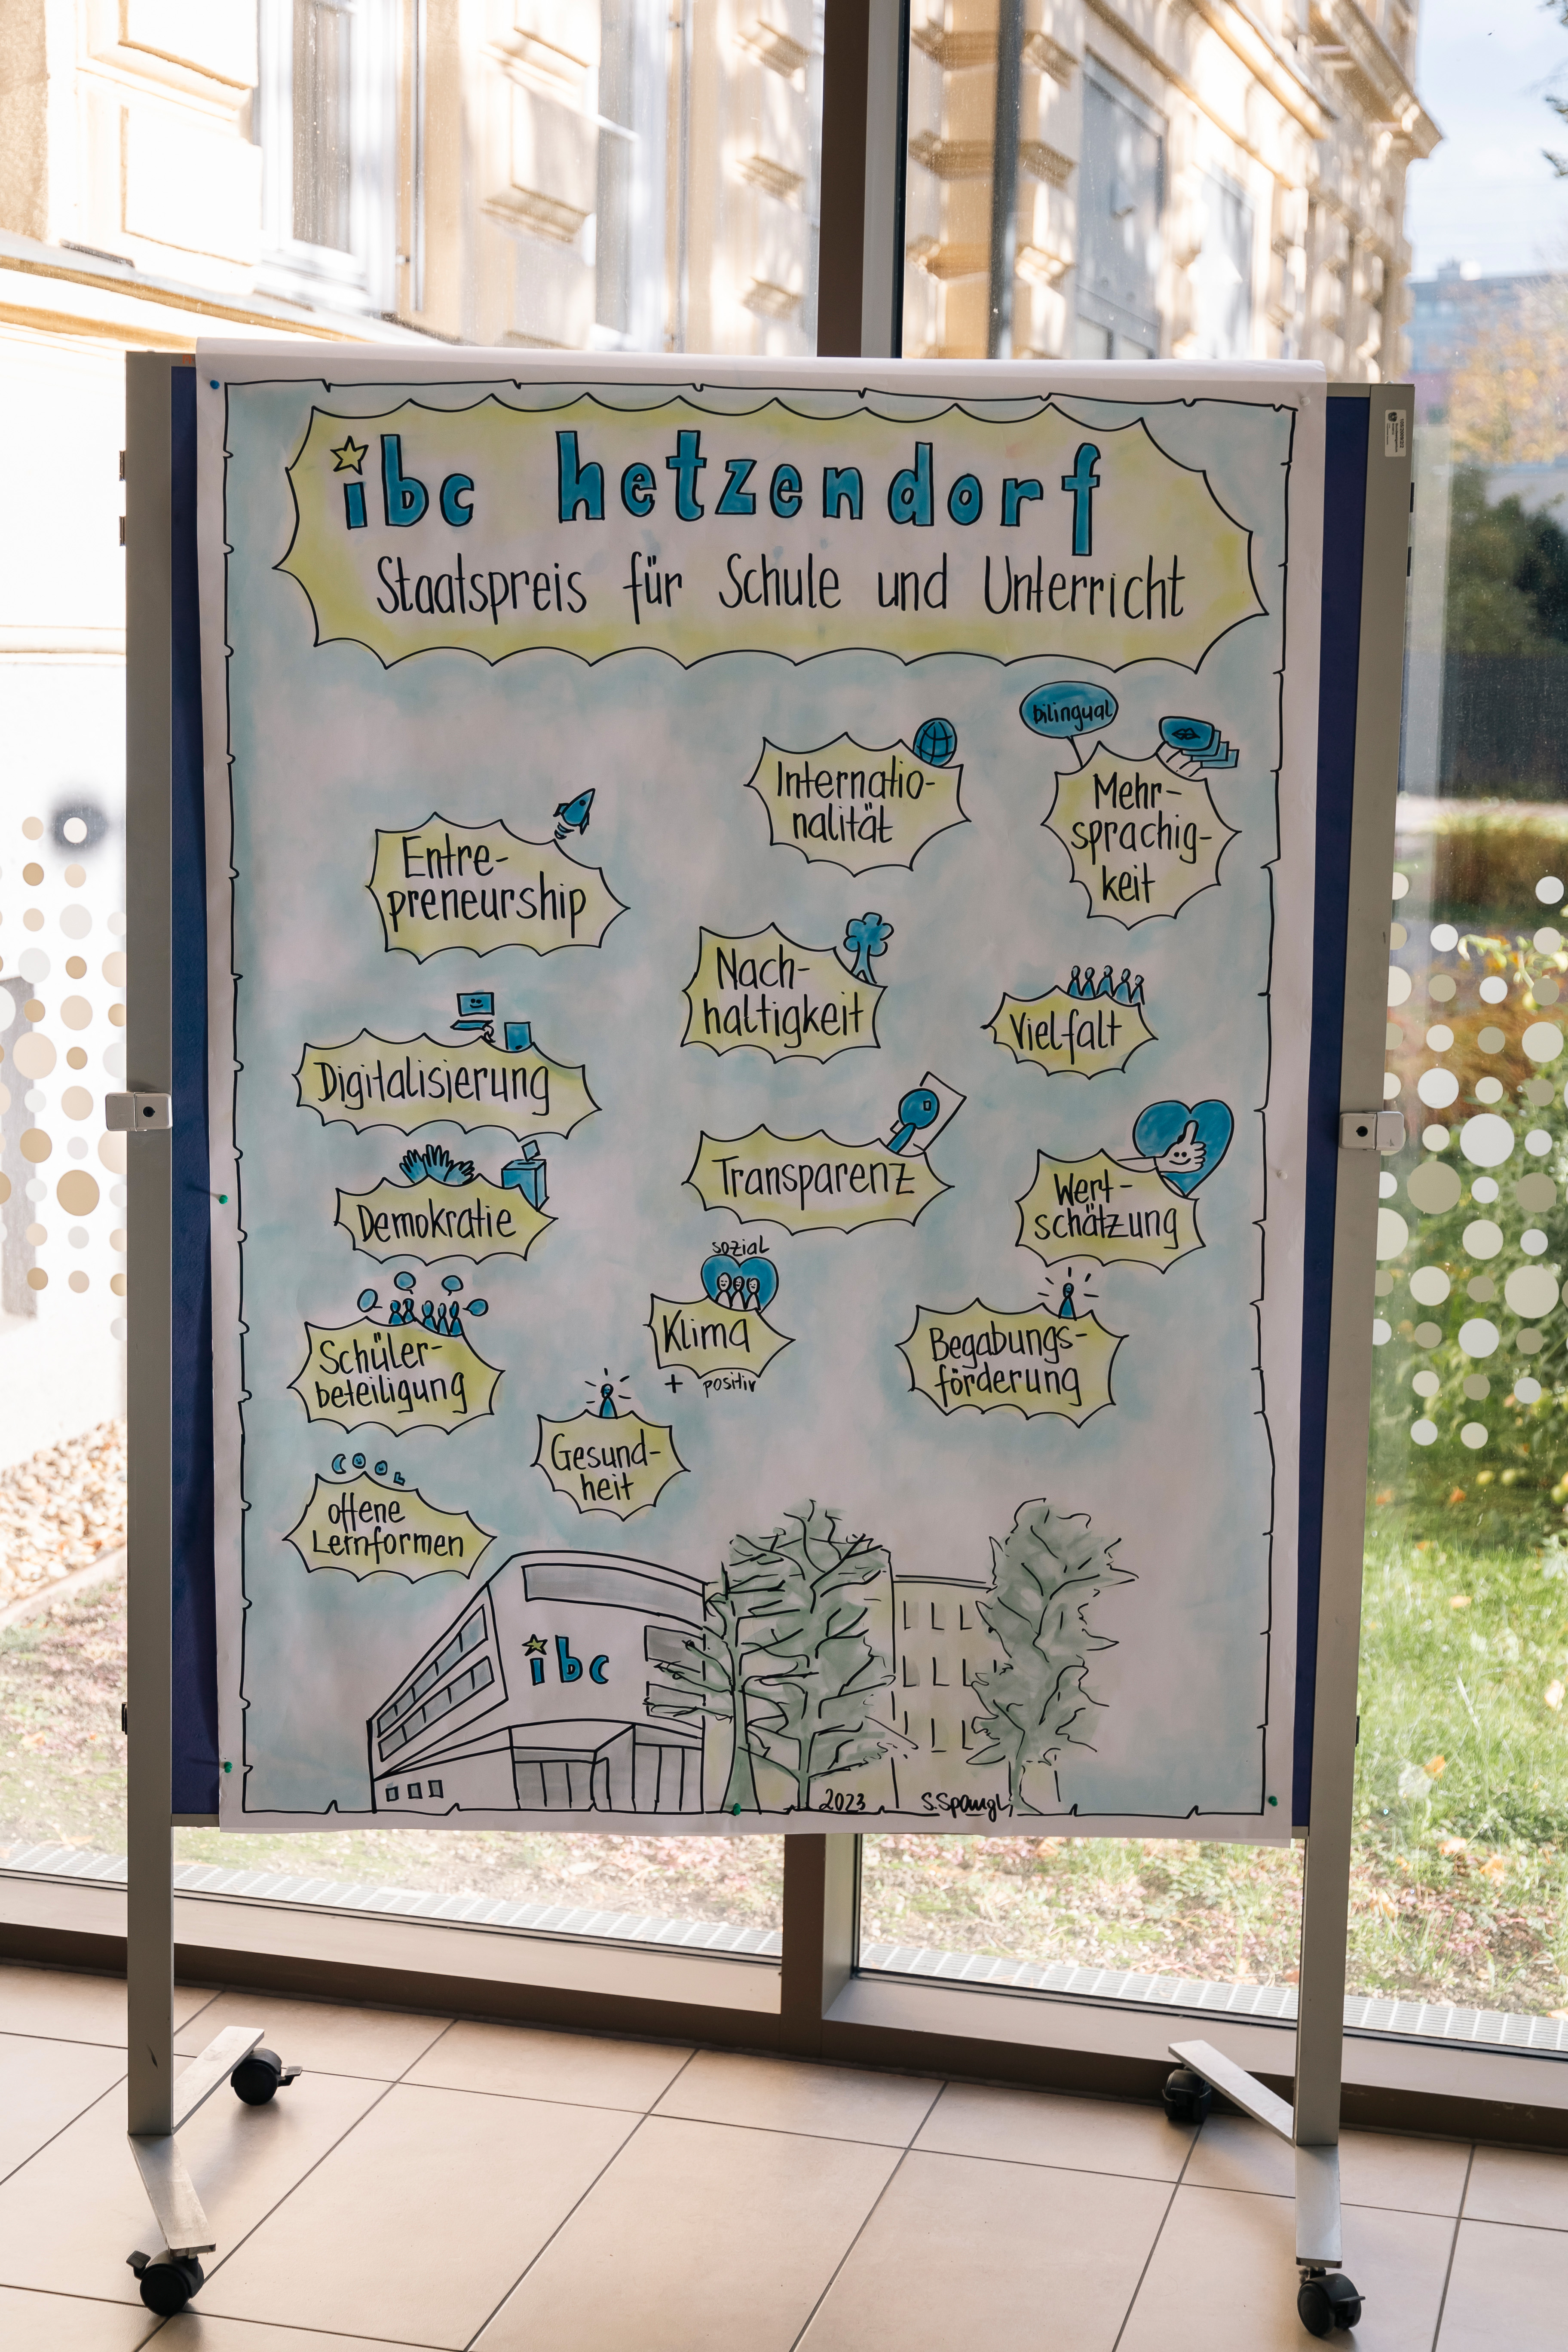 ibc hetzendorf
Staatspreis für Schule und Unterricht
bilingual
Internatio-
nalität
Mehr-
sprachig-
keit
Entre-
preneurship
Nach-
haltigkeit
Vielfalt
Digitalisierung
Transparenz
Wert-
schätzung
Demokratie
sozial
Klima
+ positiv
Schüler-
beteiligung
Begabungs-
förderung
Gesund-
heit
COOL
offene
Lernformen
ibc
2023